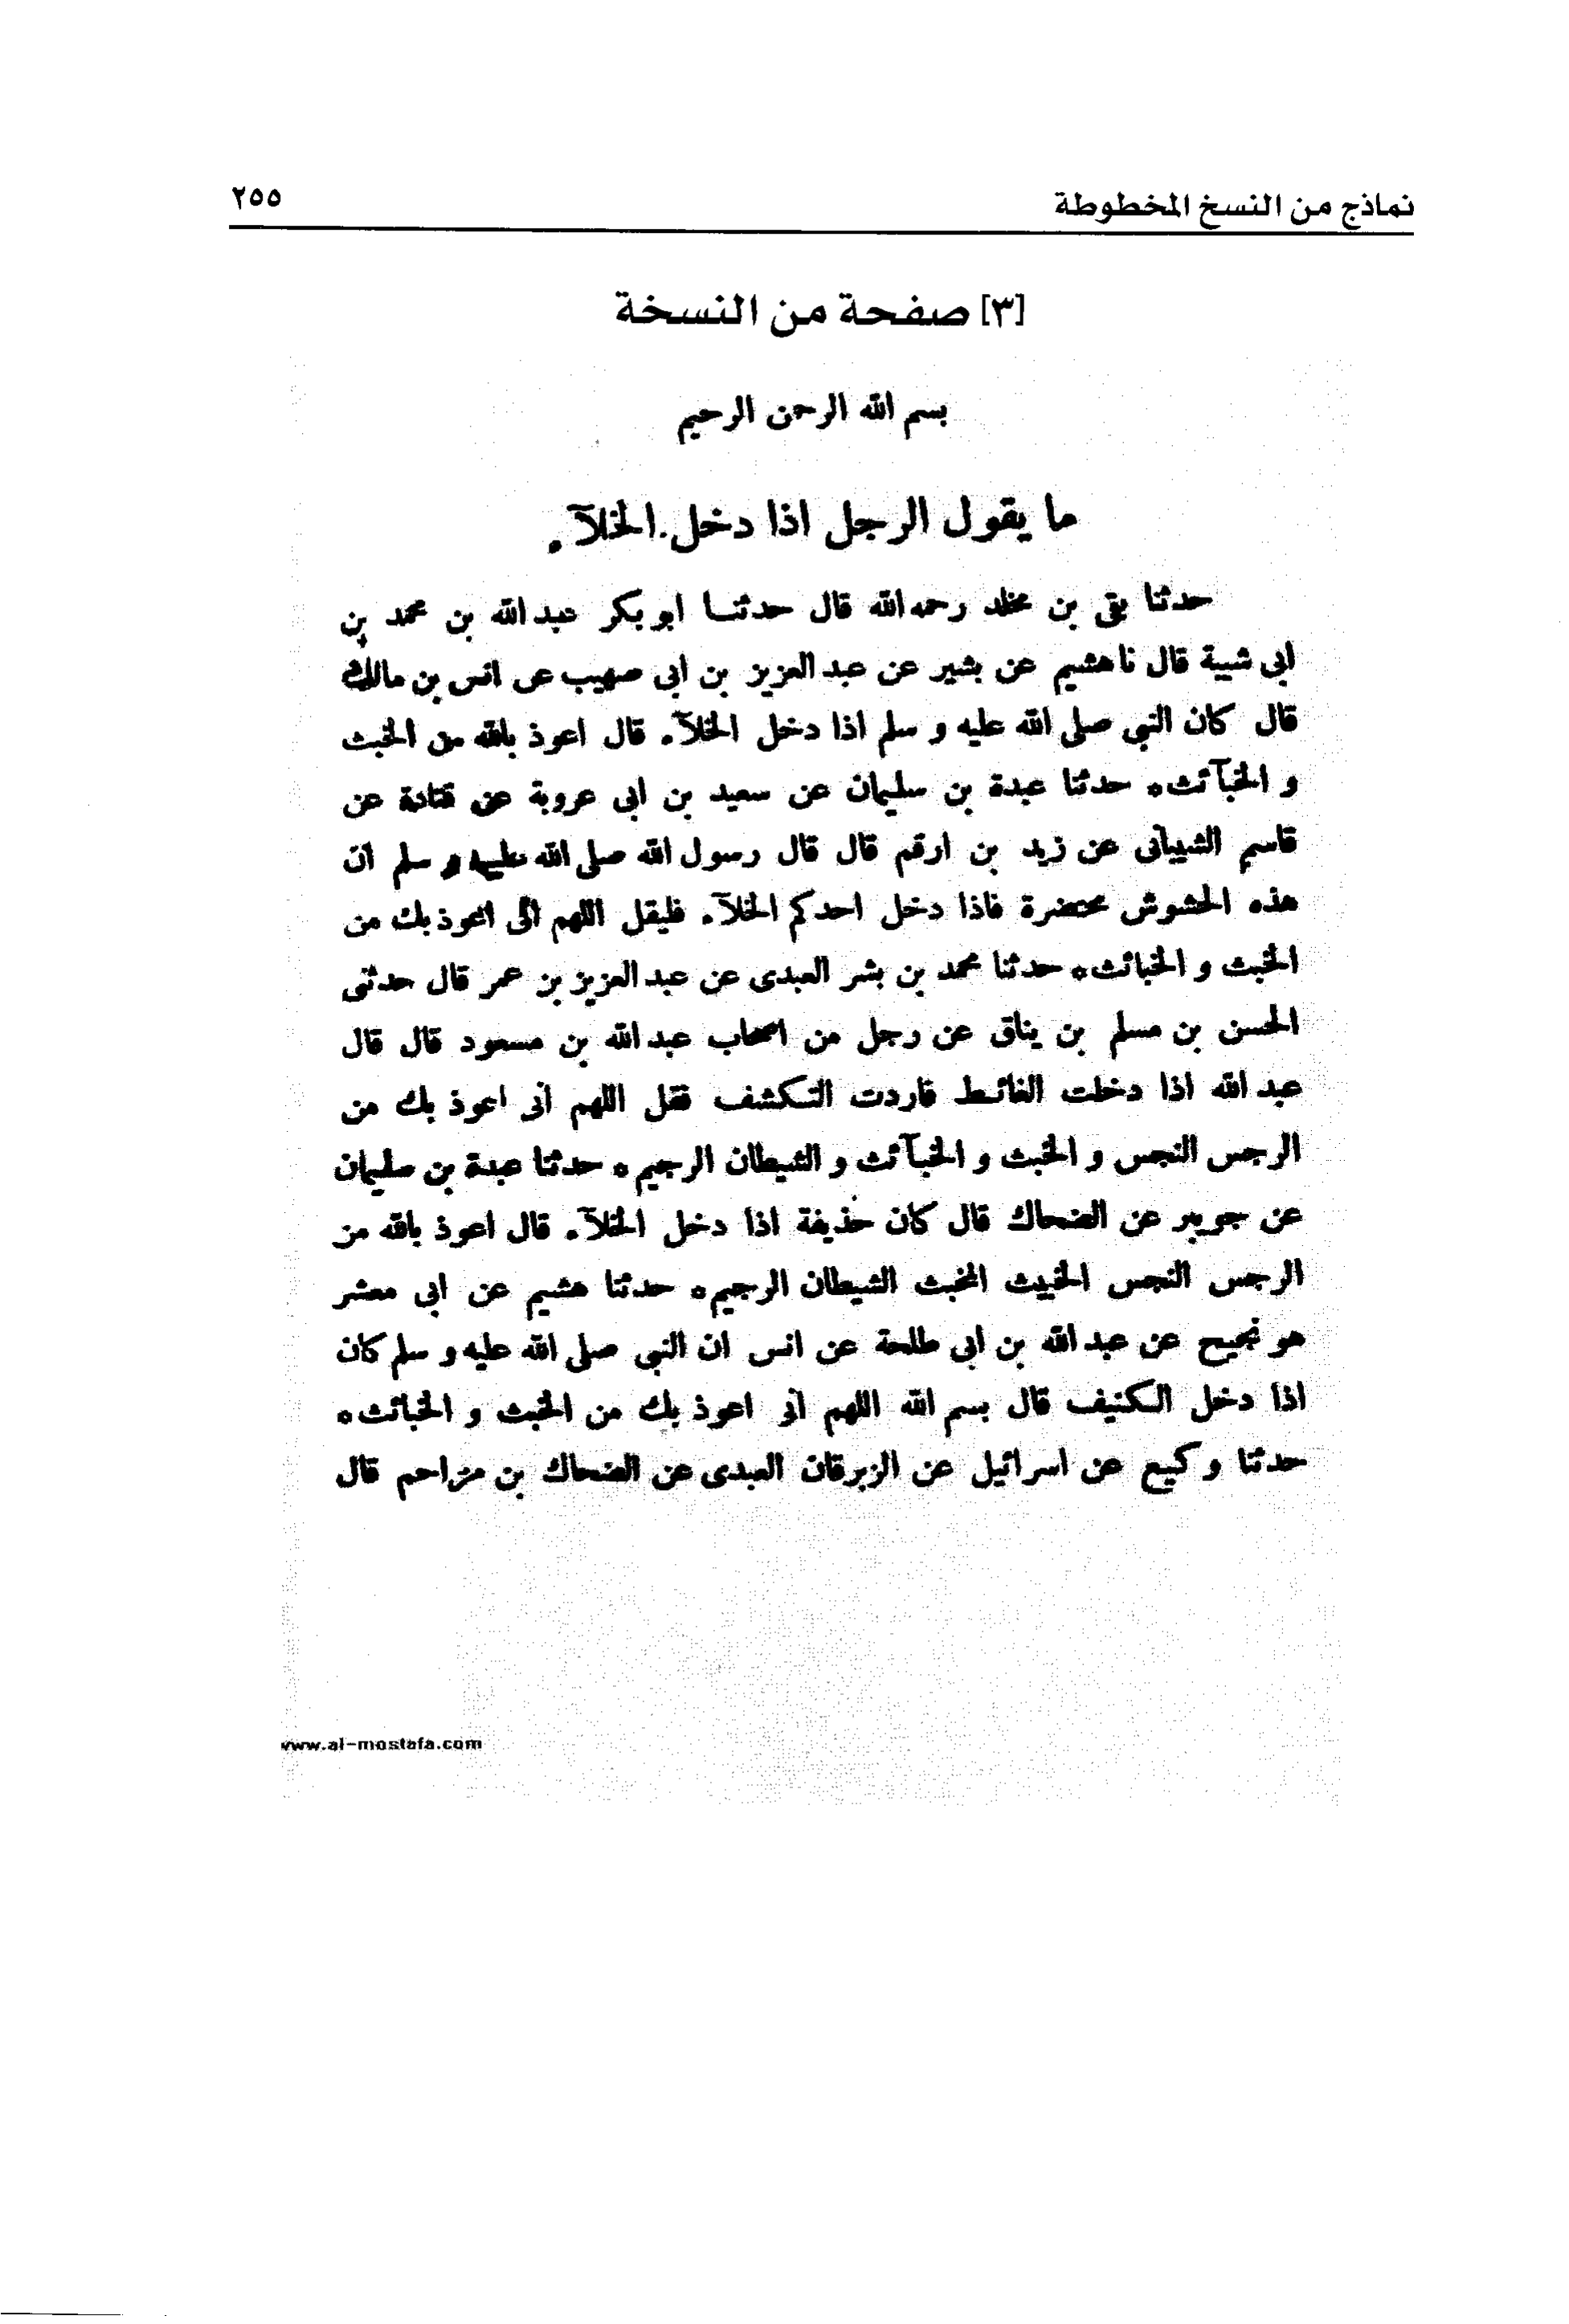 نماذج من النسخ المخطوطة ٢٥٥
[٣] صفحة من النسخة
بسم الله الرحمن الرحيم
ما يقول الرجل اذا دخل الخلآء
حدثنا بقى بن مخلد رحمه الله قال حدثنـا ابو بكر عبد الله بن محمد بن
ابى شيبة قال نا هشيم عن بشير عن عبد العزيز بن ابى صهيب عن انس بن مالك
قال كان النبى صلى الله عليه و سلم اذا دخل الخلآء قال اعوذ بالله من الخبث
و الخبآئث ه حدثنا عبدة بن سليمان عن سعيد بن ابى عروبة عن قتادة عن
قاسم الشيبانى عن زيد بن ارقم قال قال رسول الله صلى الله عليه و سلم ان
هذه الحشوش محتضرة فاذا دخل احدكم الخلآء فليقل اللهم انى اعوذ بك من
الخبث و الخبائث ه حدثنا محمد بن بشر العبدى عن عبد العزيز بن عمر قال حدثنى
الحسن بن مسلم بن يناق عن رجل من اصحاب عبد الله بن مسعود قال قال
عبد الله اذا دخلت الغائـط فاردت التـكشف فقل اللهم انى اعوذ بك من
الرجس النجس و الخبث و الخبآئث و الشيطان الرجيم ه حدثنا عبدة بن سليمان
عن جويبر عن الضحاك قال كان حذيفة اذا دخل الخلآء قال اعوذ بالله من
الرجس النجس الخبيث المخبث الشيطان الرجيم ه حدثنا هشيم عن ابى معشر
هو نجيح عن عبد الله بن ابى طلحة عن انس ان النبى صلى الله عليه و سلم كان
اذا دخل الـكنيف قال بسم الله اللهم انى اعوذ بك من الخبث و الخبائث ه
حدثنا وكيع عن اسرائيل عن الزبرقان العبدى عن الضحاك بن مزاحم قال
www.al-mostafa.com